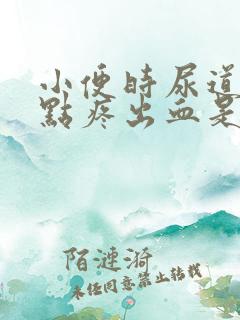 小便時尿道
點疼出血是
陌漣漪
未经同意禁止转载